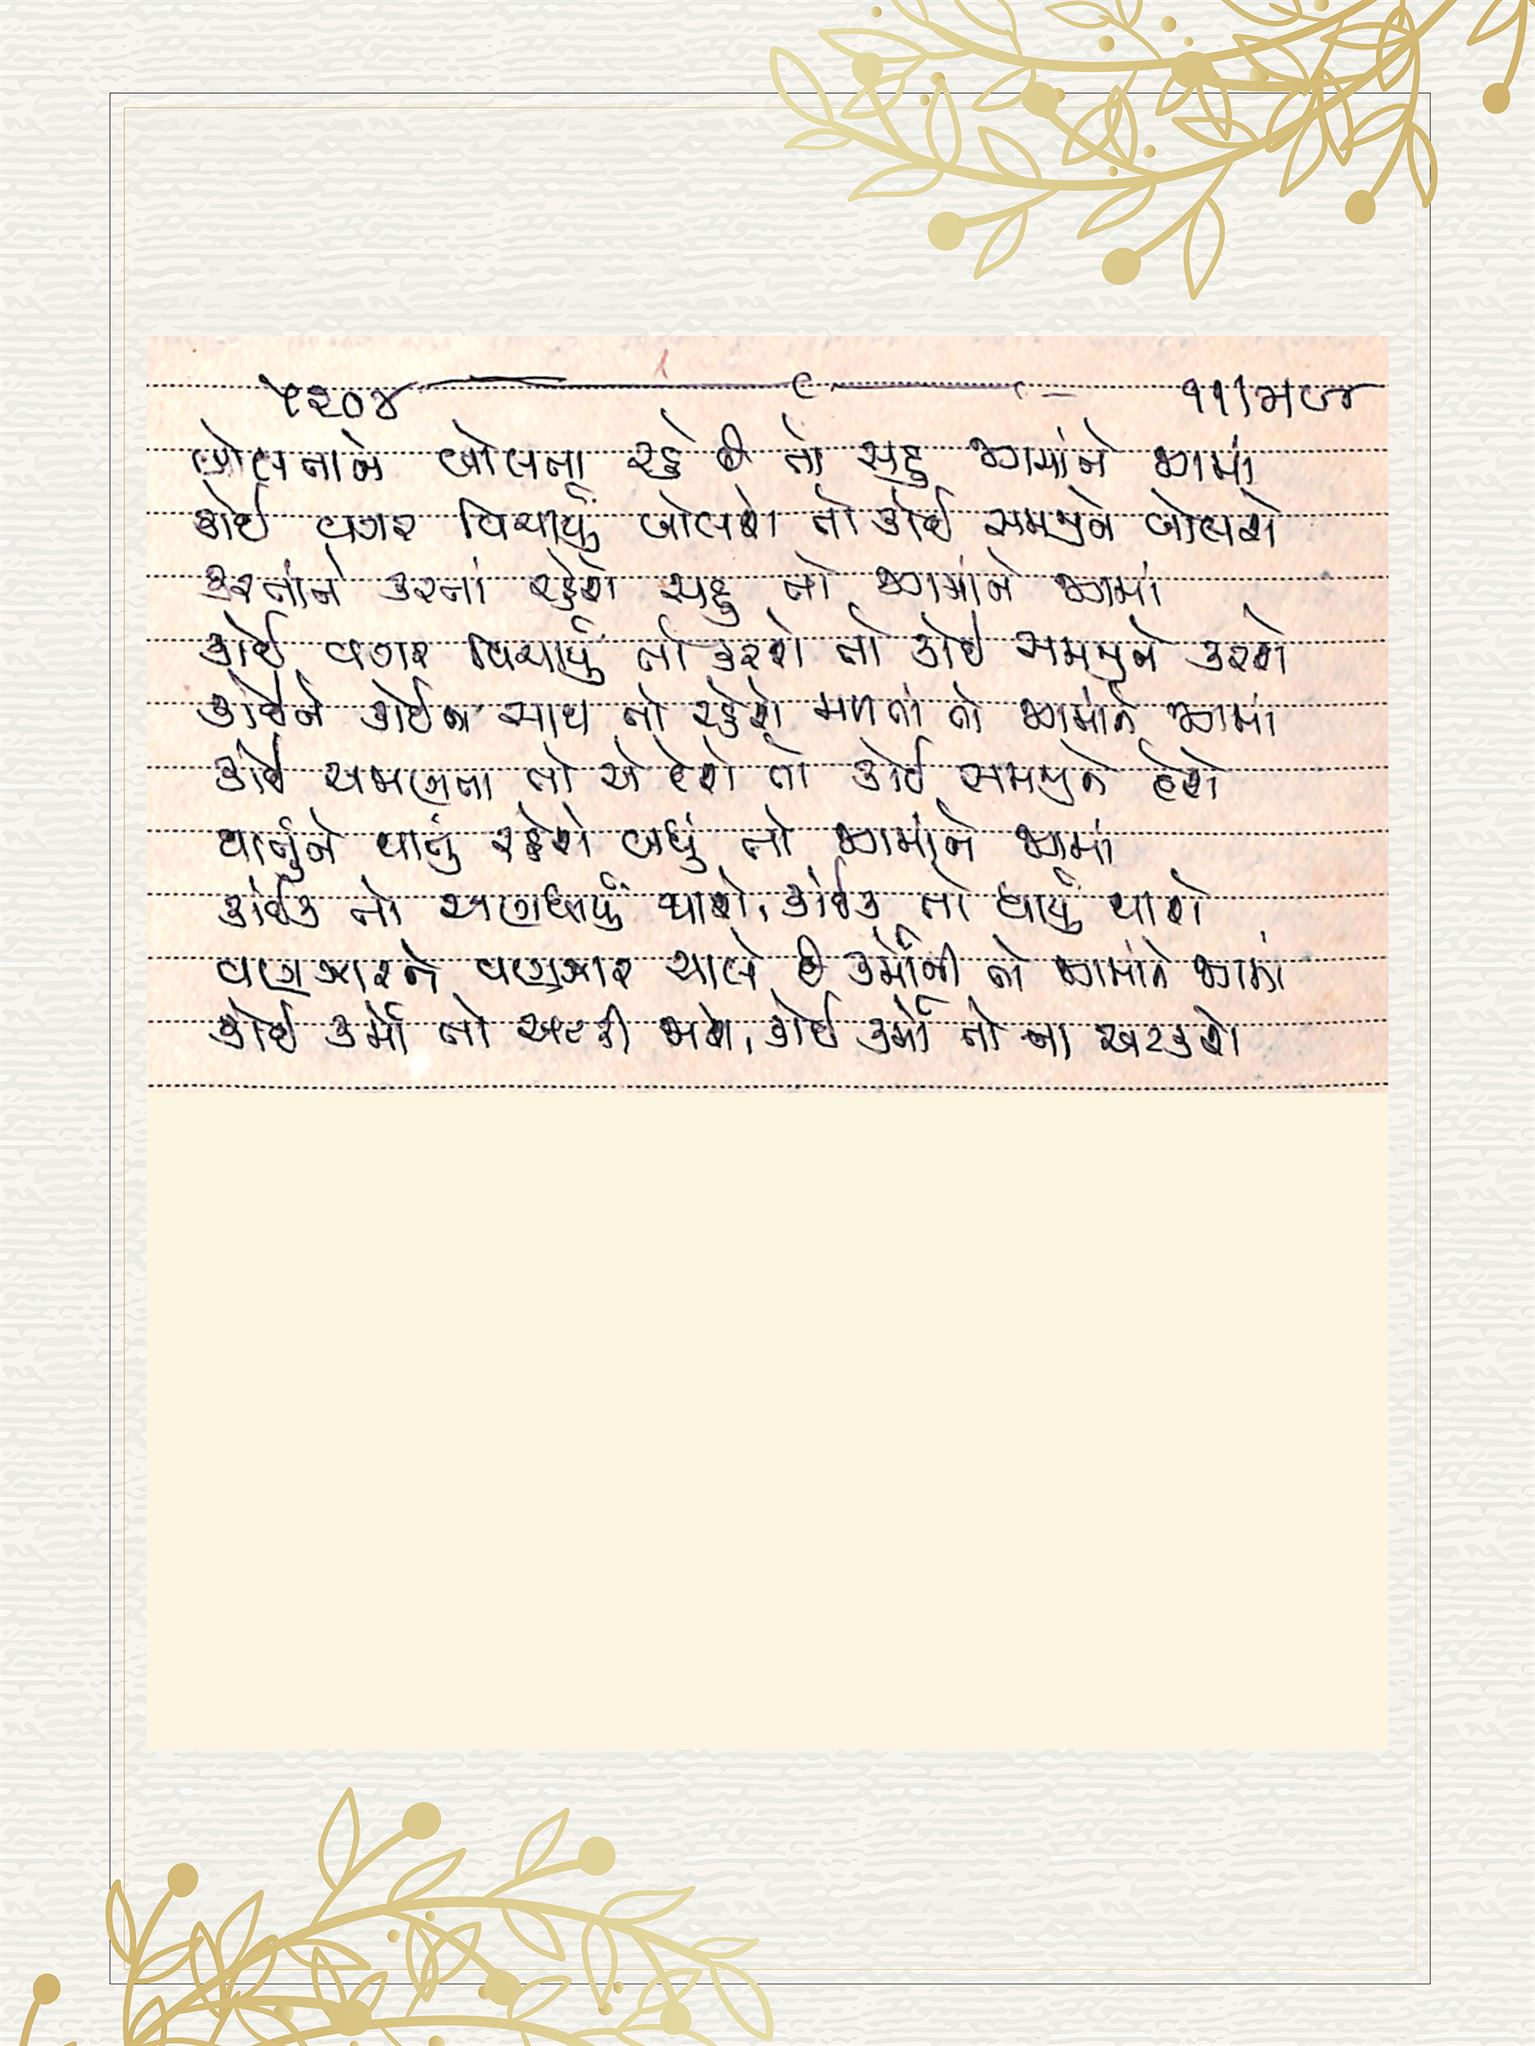 ૧૨૦૪ ૧૧|મ૯૪
બોલતાંને બોલતા રહે છે તો સહુ જગમાંને જગમાં
કોઈ વગર વિચાર્યું બોલશે તો કોઈ સમજીને બોલશે
કરતાંને કરતાં રહેશે સહુ તો જગમાંને જગમાં
કોઈ વગર વિચાર્યું તો કરશે તો કોઈ સમજીને કરશે
કોઈને કોઈના સાથ તો રહેશે મળતાં તો જગમાંને જગમાં
કોઈ અમજતા તો એ દેશે તો કોઈ સમજીને દેશે
થાતુંને થાતું રહેશે બધું તો જગમાંને જગમાં
કંઈક તો અણધાર્યું થાશે, કંઈક તો ધાર્યું થાશે
વણજારને વણજાર ચાલે છે કર્મોની તો જગમાંને જગમાં
કોઈ કર્મો તો અટકી જાશે, કોઈ કર્મો તો ના અટકશે